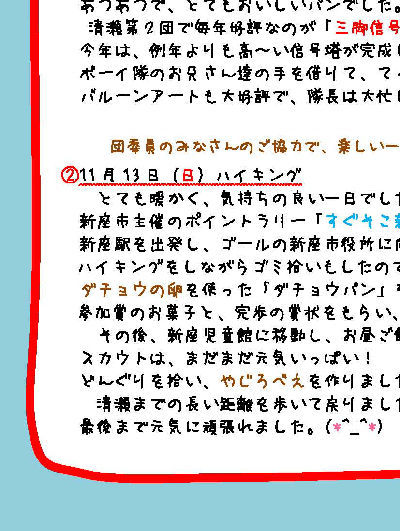 あつあつで、とてもおいしいパンでした。
清瀬第２団で毎年好評なのが「三脚信号
今年は、例年よりも高〜い信号塔が完成し
ボーイ隊のお兄さん達の手を借りて、て
バルーンアートも大好評で、隊長は大忙し
団委員のみなさんのご協力で、楽しい一
②11月13日（日）ハイキング
とても暖かく、気持ちの良い一日でした
新座市主催のポイントラリー「すぐそこ新
新座駅を出発し、ゴールの新座市役所に向
ハイキングをしながらゴミ拾いもしたので
ダチョウの卵を使った「ダチョウパン」を
参加賞のお菓子と、完歩の賞状をもらい、
その後、新座児童館に移動し、お昼ご飯
スカウトは、まだまだ元気いっぱい！
どんぐりを拾い、やじろべえを作りました
清瀬までの長い距離を歩いて戻りました
最後まで元気に頑張れました。(*^_^*)